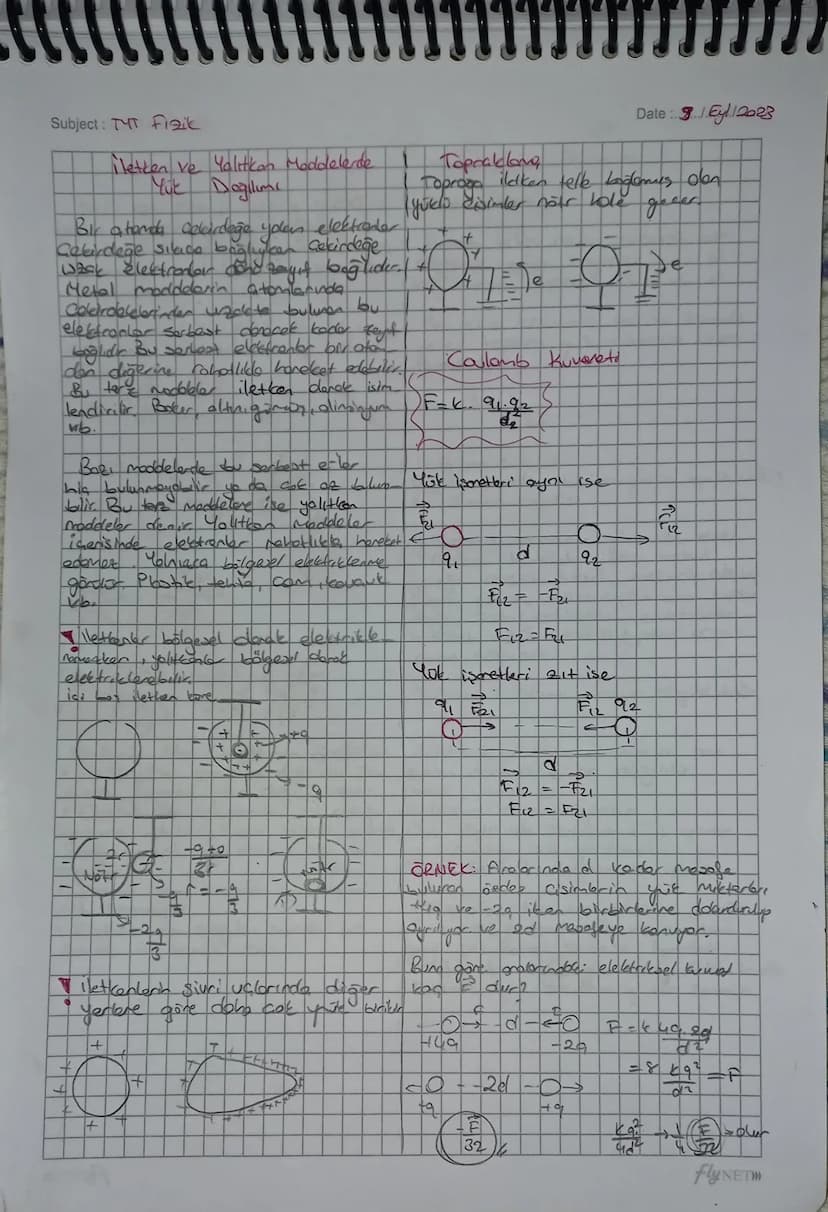 Subject : TYT Fizik
Date : 9 / Eyl / 2023
İletken ve Yalıtkan Maddelerde
Yük Dağılımı
Bir atomda çekirdeğe yakın elektronlar
çekirdeğe sıkıca bağlıyken çekirdeğe
uzak elektronlar daha zayıf bağlıdır.
Metal maddelerin atomlarında
uzakta bulunan bu
elektronlar serbest olarak kadar zayıf
bağlıdır Bu serbest elektronlar bir atom
dan diğerine rahatlıkla hareket edebilir.
Bu tarz maddeler iletken olarak isim
lendirilir. Bakır, altın, gümüş, alüminyum
vb.
Bazı maddelerde bu serbest e-ler
hiç bulunmayabilir ya da çok az bulun
bilir. Bu tarz maddelere ise yalıtkan
maddeler denir. Yalıtkan Maddeler
içerisinde elektronlar rahatlıkla hareket
edemez. Yalnızca bölgesel elektriklenme
görülür. Plastik, cam, kauçuk
vb.
İletkenler bölgesel olarak elektrikle
yalıtkanlar bölgesel olarak
elektriklenebilir.
içi boş iletken küre
+q
-q
Nötr
-q+0
3r
r = -q
3
-2q
3
Nötr
İletkenlerin sivri uçlarında diğer
yerlere göre daha çok yük birikir
Topraklama
Toprağa iletken telle bağlanmış olan
yüklü cisimler nötr hale geçer.
e
e
Coulomb Kuvveti
F = k. q1.q2
d2
Yük işaretleri aynı ise
F21
F12
q1
d
q2
F12 = -F21
F12 = F21
Yük işaretleri zıt ise
q1 F21
F12 q2
d
F12 = -F21
F12 = F21
ÖRNEK: Aralarında d kadar mesafe
bulunan özdeş cisimlerin yük miktarları
+4q ve -2q iken birbirlerine dokundurulup
ayrılıyor ve 2d mesafeye konuyor.
Buna göre aralarındaki elektriksel kuvvet
kaç F dur?
d
F = k 4q.2q
d2
+4q
-2q
= 8 kq2 = F
d2
2d
+q
+q
-F
32
kq2
4d2
→ 1 F
4 32
olur
flyNETm